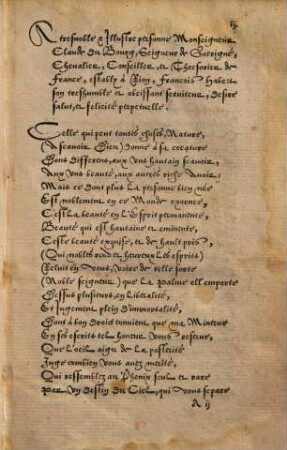 A tresnoble & Illustre personne Monseigneur
Claude du Bourg, Seigneur de Guerigne,
Chevalier, Conseiller, et Thresorier de
France, establ' à Rion, Francois Habert
son treshumble et obeissant serviteur, desire
salut, et felicité perpetuelle.
Celle qui peut toutes choses, Nature,
(Ascavoir Dieu) donne à sa creature
Dons differens, aux uns hautain scavoir,
Aux uns beauté, aux autres riche avoir
Mais ce don plus la personne bien née
Est noblement en ce Monde
C'est la beauté en l'Esprit permanente,
Beauté qui est hautaine et eminente,
Ceste beauté exquise, et de hault pris,
(Qui nobles rend et heureux les esprits)
Reluit en vous, voire de telle sorte
(Noble seigneur) que la palme ell' emporte
Dessus plusieurs, en liberalité,
Et Jugement plein d'immortalité,
Dont à bon droit convient que ma Minerve
En ses escrits tel honneur vous reserve,
Que l'oeil aigu de la posterité
Juge combien vous avez merité,
Qui ressemblez un Phenix seul et rare
Par un destin du Ciel, qui vous separe
A ij